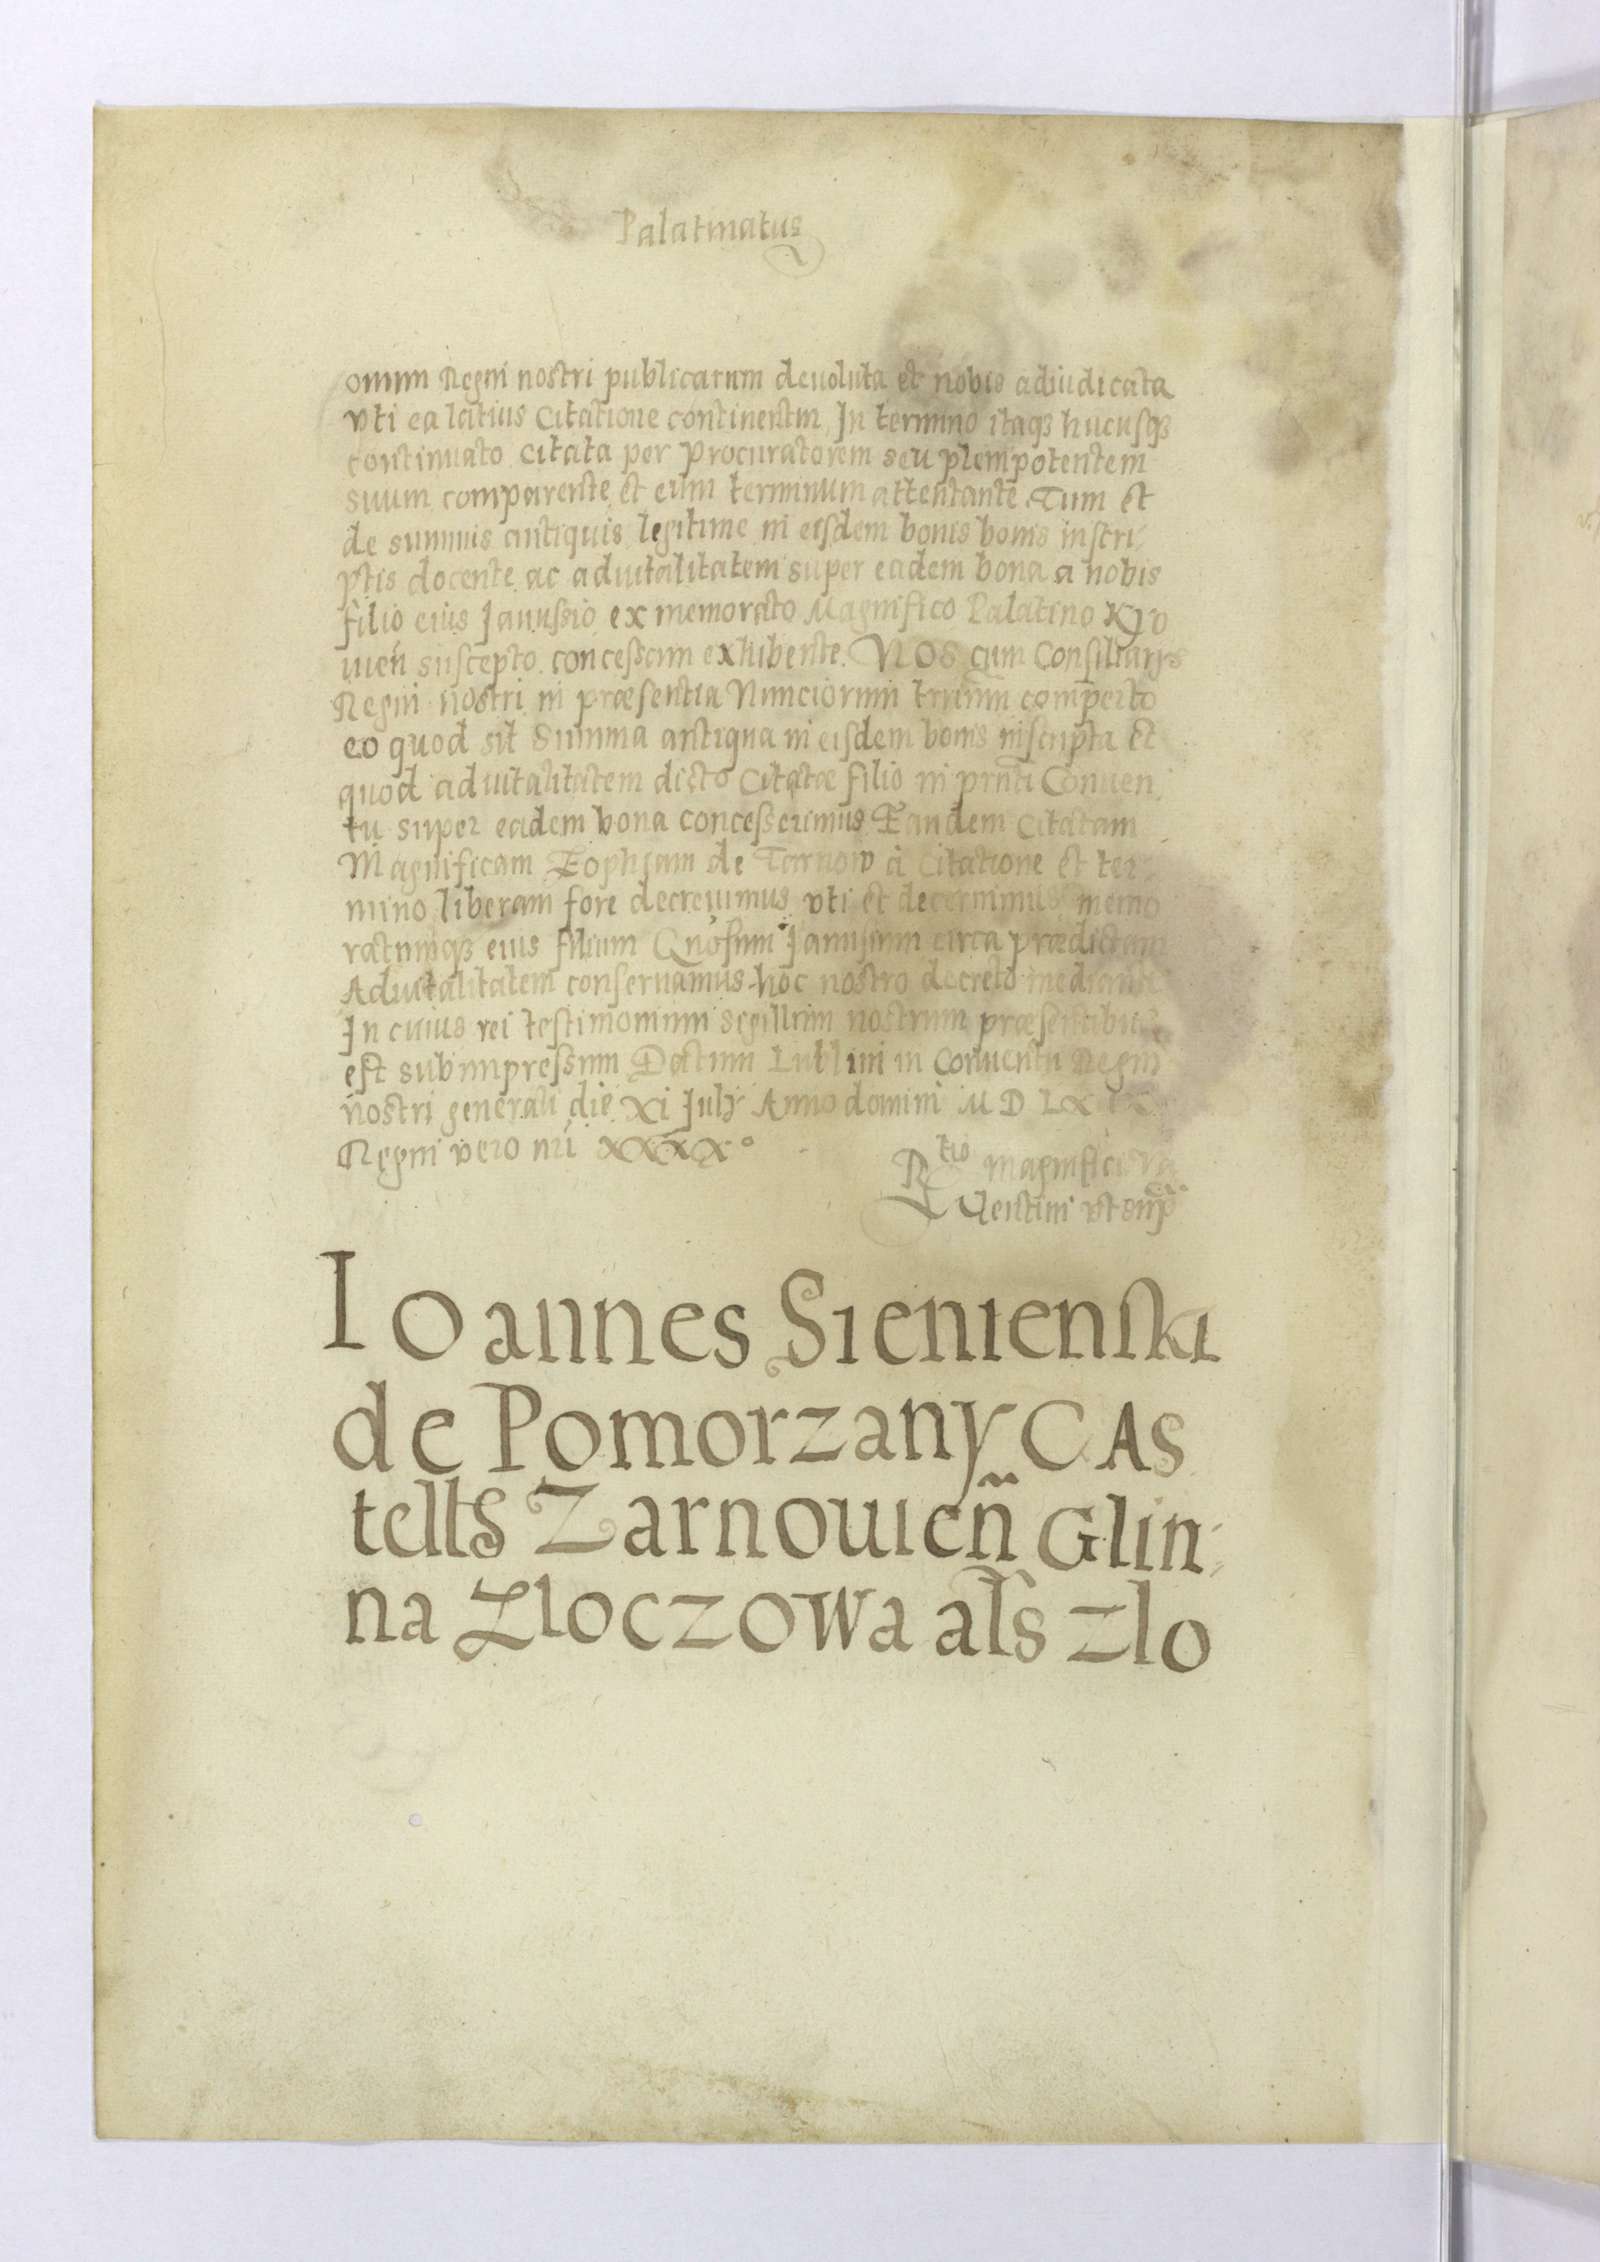 Palatinatus
onum Regni nostri publicarum deuoluta et nobis adiudicata
vti ea latius Citatione continentur, In termino itaqȝ hucusqȝ
continuato citata per procuratorem seu plenipotentem
suum comparente et eum terminum attentante Tum et
de summis antiquis legitime in eisdem bonis bonis inscri
ptis docente ac aduitalitatem super eadem bona a nobis
filio eius Janussio ex memorato Magnifico Palatino Kyo
uień suscepto concessam exhibente. NOS cum Consiliarijs
Regni nostri in præsentia Nunciorum trium comperto
eo quod sit Summa antiqua in eisdem bonis inscripta et
quod aduitalitatem dicto Citatæ filio in prnti Conuen
tu super eadem bona concesserimus Eandem citatam
Magnificam Zophiam de Tarnow à Citatione et ter
mino liberam fore decreuimus vti et decernimus memo
ratumqȝ eius filium Gnosum Janusium circa prædictam
Aduitalitatem conseruamus hoc nostro decreto mediante
In cuius rei testimonium sigillum nostrum præsentibus
est subimpressum Datum Lublini in Conuentu Regni
nostri generali die Xi Julij Anno domini M D LX IX
Regni vero nri XXXX°
Rtio Magnifici Va
lentini vt supra
Ioannes Sienienski
de Pomorzany CAs
tells Zarnowień Glin
na Zloczowa als Zlo